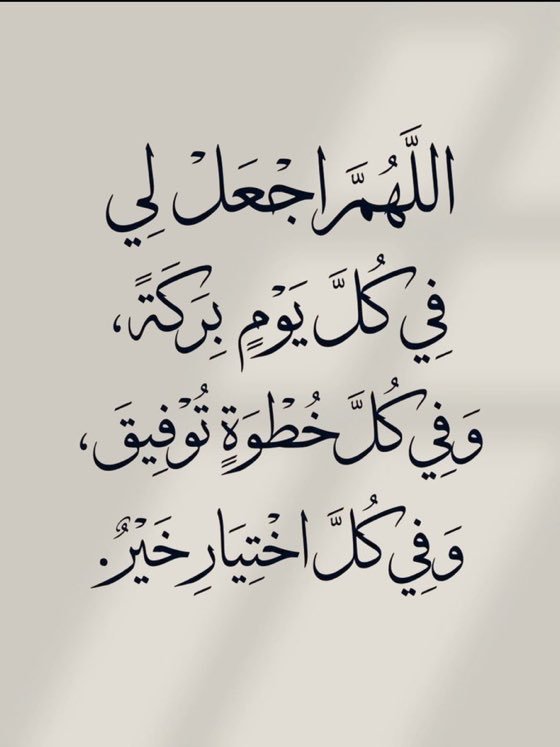 اللَّهُمَّ اجْعَلْ لِي
فِي كُلَّ يَوْمٍ بِرَكَةً،
وَفِي كُلَّ خُطْوَةٍ تُوْفِيقَ،
وَفِي كُلَّ اخْتِيَارِ خَيْرٌ.